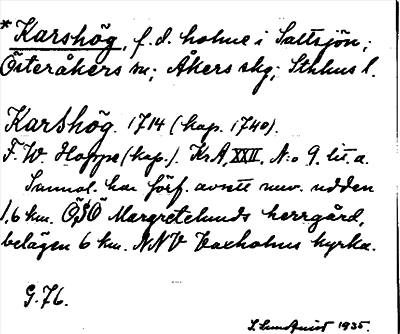 *Karshög, f.d. holme i Saltsjön;
Österåkers sn; Åkers skg; Sthlms l.
Karshög. 1714 (kop. 1740).
F. W. Hoppe (kop.). KrA, XXII, N:o 9, lit. a.
Sannol. har förf. avsett nuv. udden
1,6 km. ÖSÖ Margretelunds herrgård,
belägen 6 km. NNV Vaxholms kyrka.
G. 76.
S. Lundquist 1935.